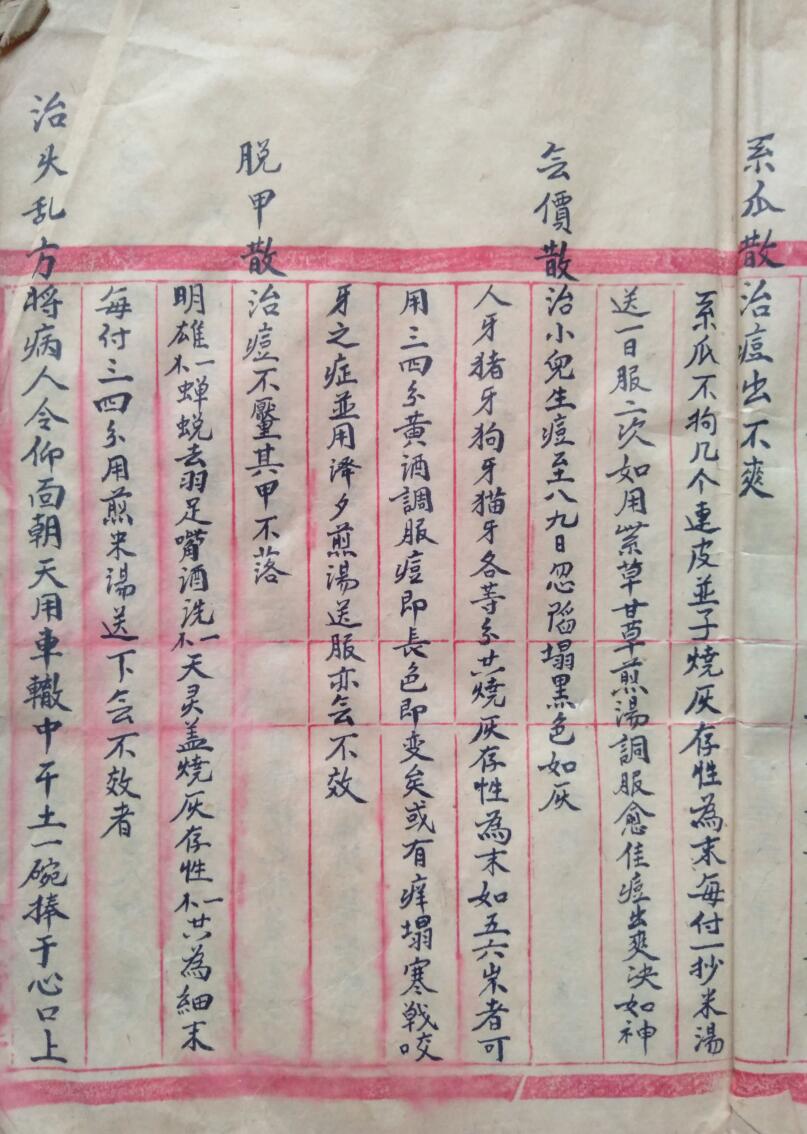 系瓜散治痘出不爽
系瓜不狗几个連皮並子燒灰存性為末每付一抄米湯
送一日服二次如用紫草甘草煎湯調服愈佳痘出爽決如神
会價散治小兒生痘至八九日忽陷塌黑色如灰
人牙猪牙狗牙猫牙各等分共燒灰存性為末如五六岁者可
用三四分黄酒調服痘即長色即变矣或有痒塌寒戰咬
牙之症並用泽夕煎湯送服亦会不效
脱甲散治痘不靨其甲不落
明雄一个蝉蜕去羽足嘴酒洗一个天灵盖燒灰存性一个共為細末
每付三四分用煎米湯送下会不效者
治头乱方將病人令仰面朝天用車辙中干土一碗捧于心口上